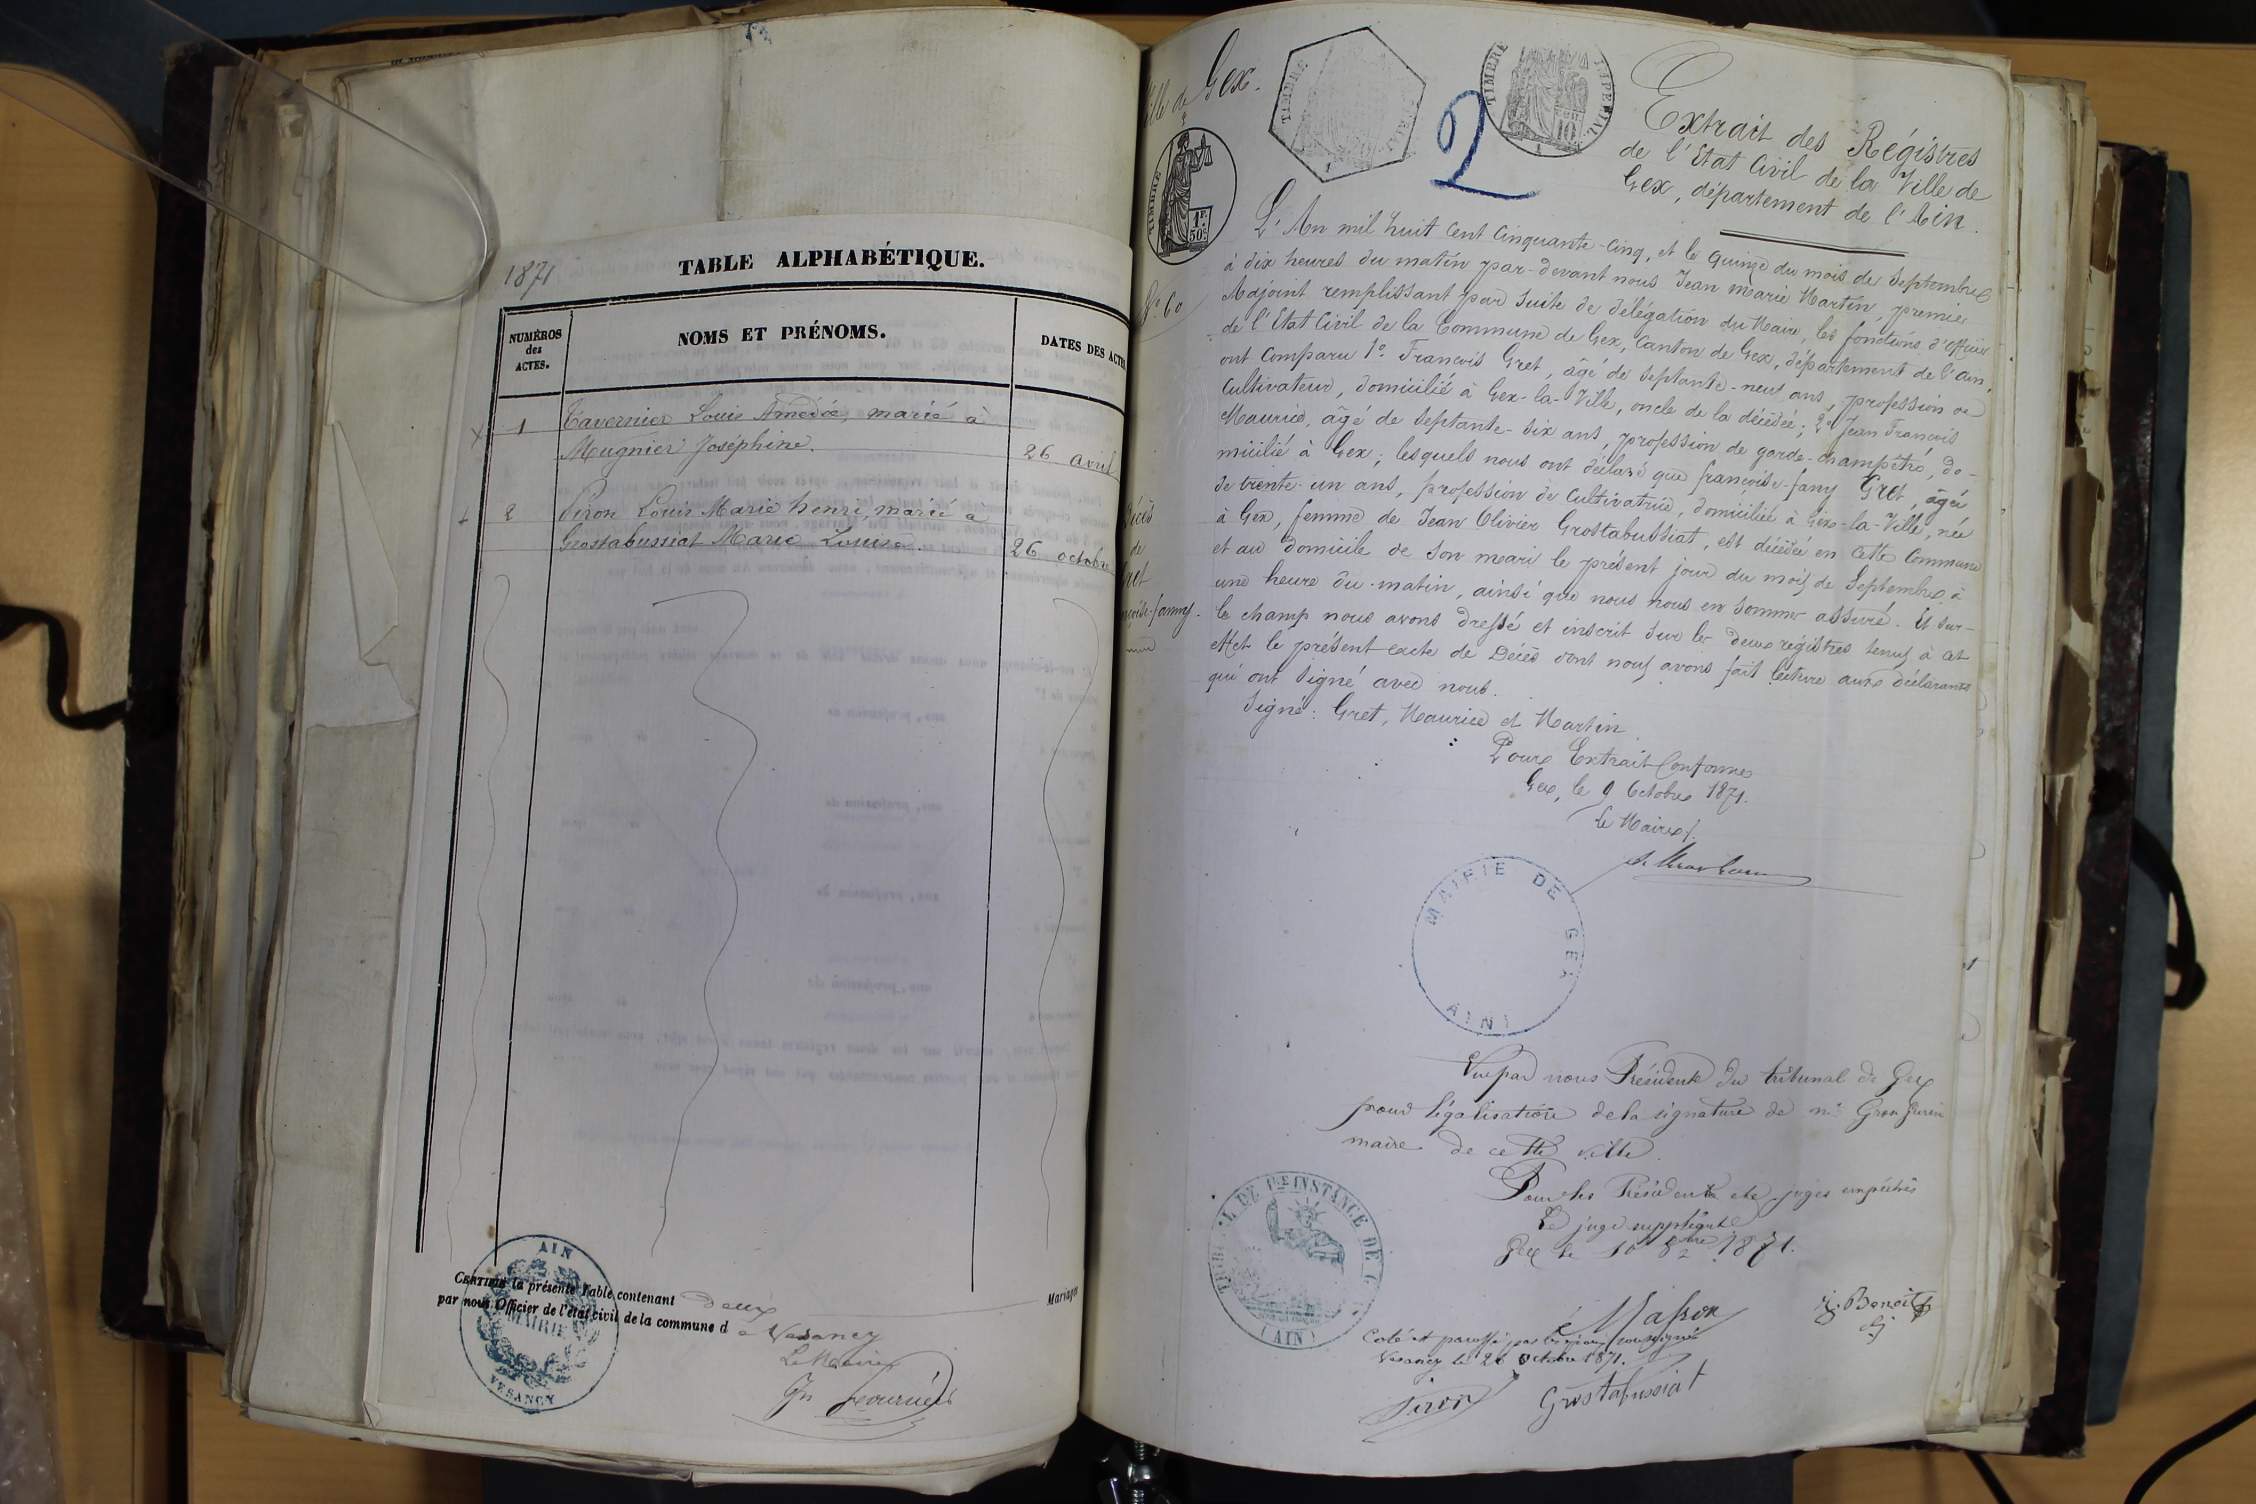 1871
TABLE ALPHABÉTIQUE.
NUMÉROS des ACTES.
NOMS ET PRÉNOMS.
DATES DES ACTES
1 Tavernier Louis Amedée, marié à
Mugnier Joséphine. 26 avril
2 Piron Louis Marie henri, marié a
Grostabussiat Marie Louise. 26 octobre
CERTIFIÉ la présente Table contenant deux
par nous Officier de l'état civil de la commune d e Vesancy
Mariages
Le Maire
Fournier
AIN
MAIRIE
VESANCY
Ville de Gex.
TIMBRE
1F. 50c.
TIMBRE
2
TIMBRE IMPERIAL
10
N° 60
Extrait des Régistres
de l'Etat Civil de la Ville de
Gex, département de l'Ain.
L'An mil huit cent cinquante-cinq, et le quinze du mois de Septembre
à dix heures du matin par-devant nous Jean Marie Martin, premier
Adjoint remplissant par suite de délégation du Maire, les fonctions d'officier
de l'Etat Civil de la Commune de Gex, Canton de Gex, département de l'ain,
ont comparu 1° François Gret, âgé de septante-neuf ans, profession de
cultivateur, domicilié à Gex-la-Ville, oncle de la décédée; 2° Jean François
Maurice, âgé de septante-six ans, profession de garde-champêtre, do-
micilié à Gex; lesquels nous ont déclaré que françoise-fany Gret, âgée
de trente-un ans, profession de cultivatrice, domiciliée à Gex-la-Ville, née
à Gex, femme de Jean Olivier Grostabussiat, est décédée en cette Commune
et au domicile de son mari le présent jour du mois de Septembre à
une heure du matin, ainsi que nous nous en sommes assuré. Et sur-
le champ nous avons dressé et inscrit sur les deux régistres tenus à cet
effet le présent acte de Décès dont nous avons fait lecture aux déclarants
qui ont signé avec nous.
Signé: Gret, Maurice et Martin.
Décès
de
Gret
françoise-fanny.
Pour Extrait Conforme
Gex, le 9 Octobre 1871.
Le Maire
MAIRIE DE GEX
(AIN)
Vu par nous Président du tribunal de Gex
pour légalisation de la signature de mr
maire de cette ville.
Pour les Président et juges empêchés
Le juge suppléant
Gex le 10 8bre 1871.
TRIBUNAL DE 1RE INSTANCE DE G
(AIN)
Masson
Benoit
Coté et paraffé par les soussignés
Vesancy le 26 octobre 1871.
Piron Grostabussiat